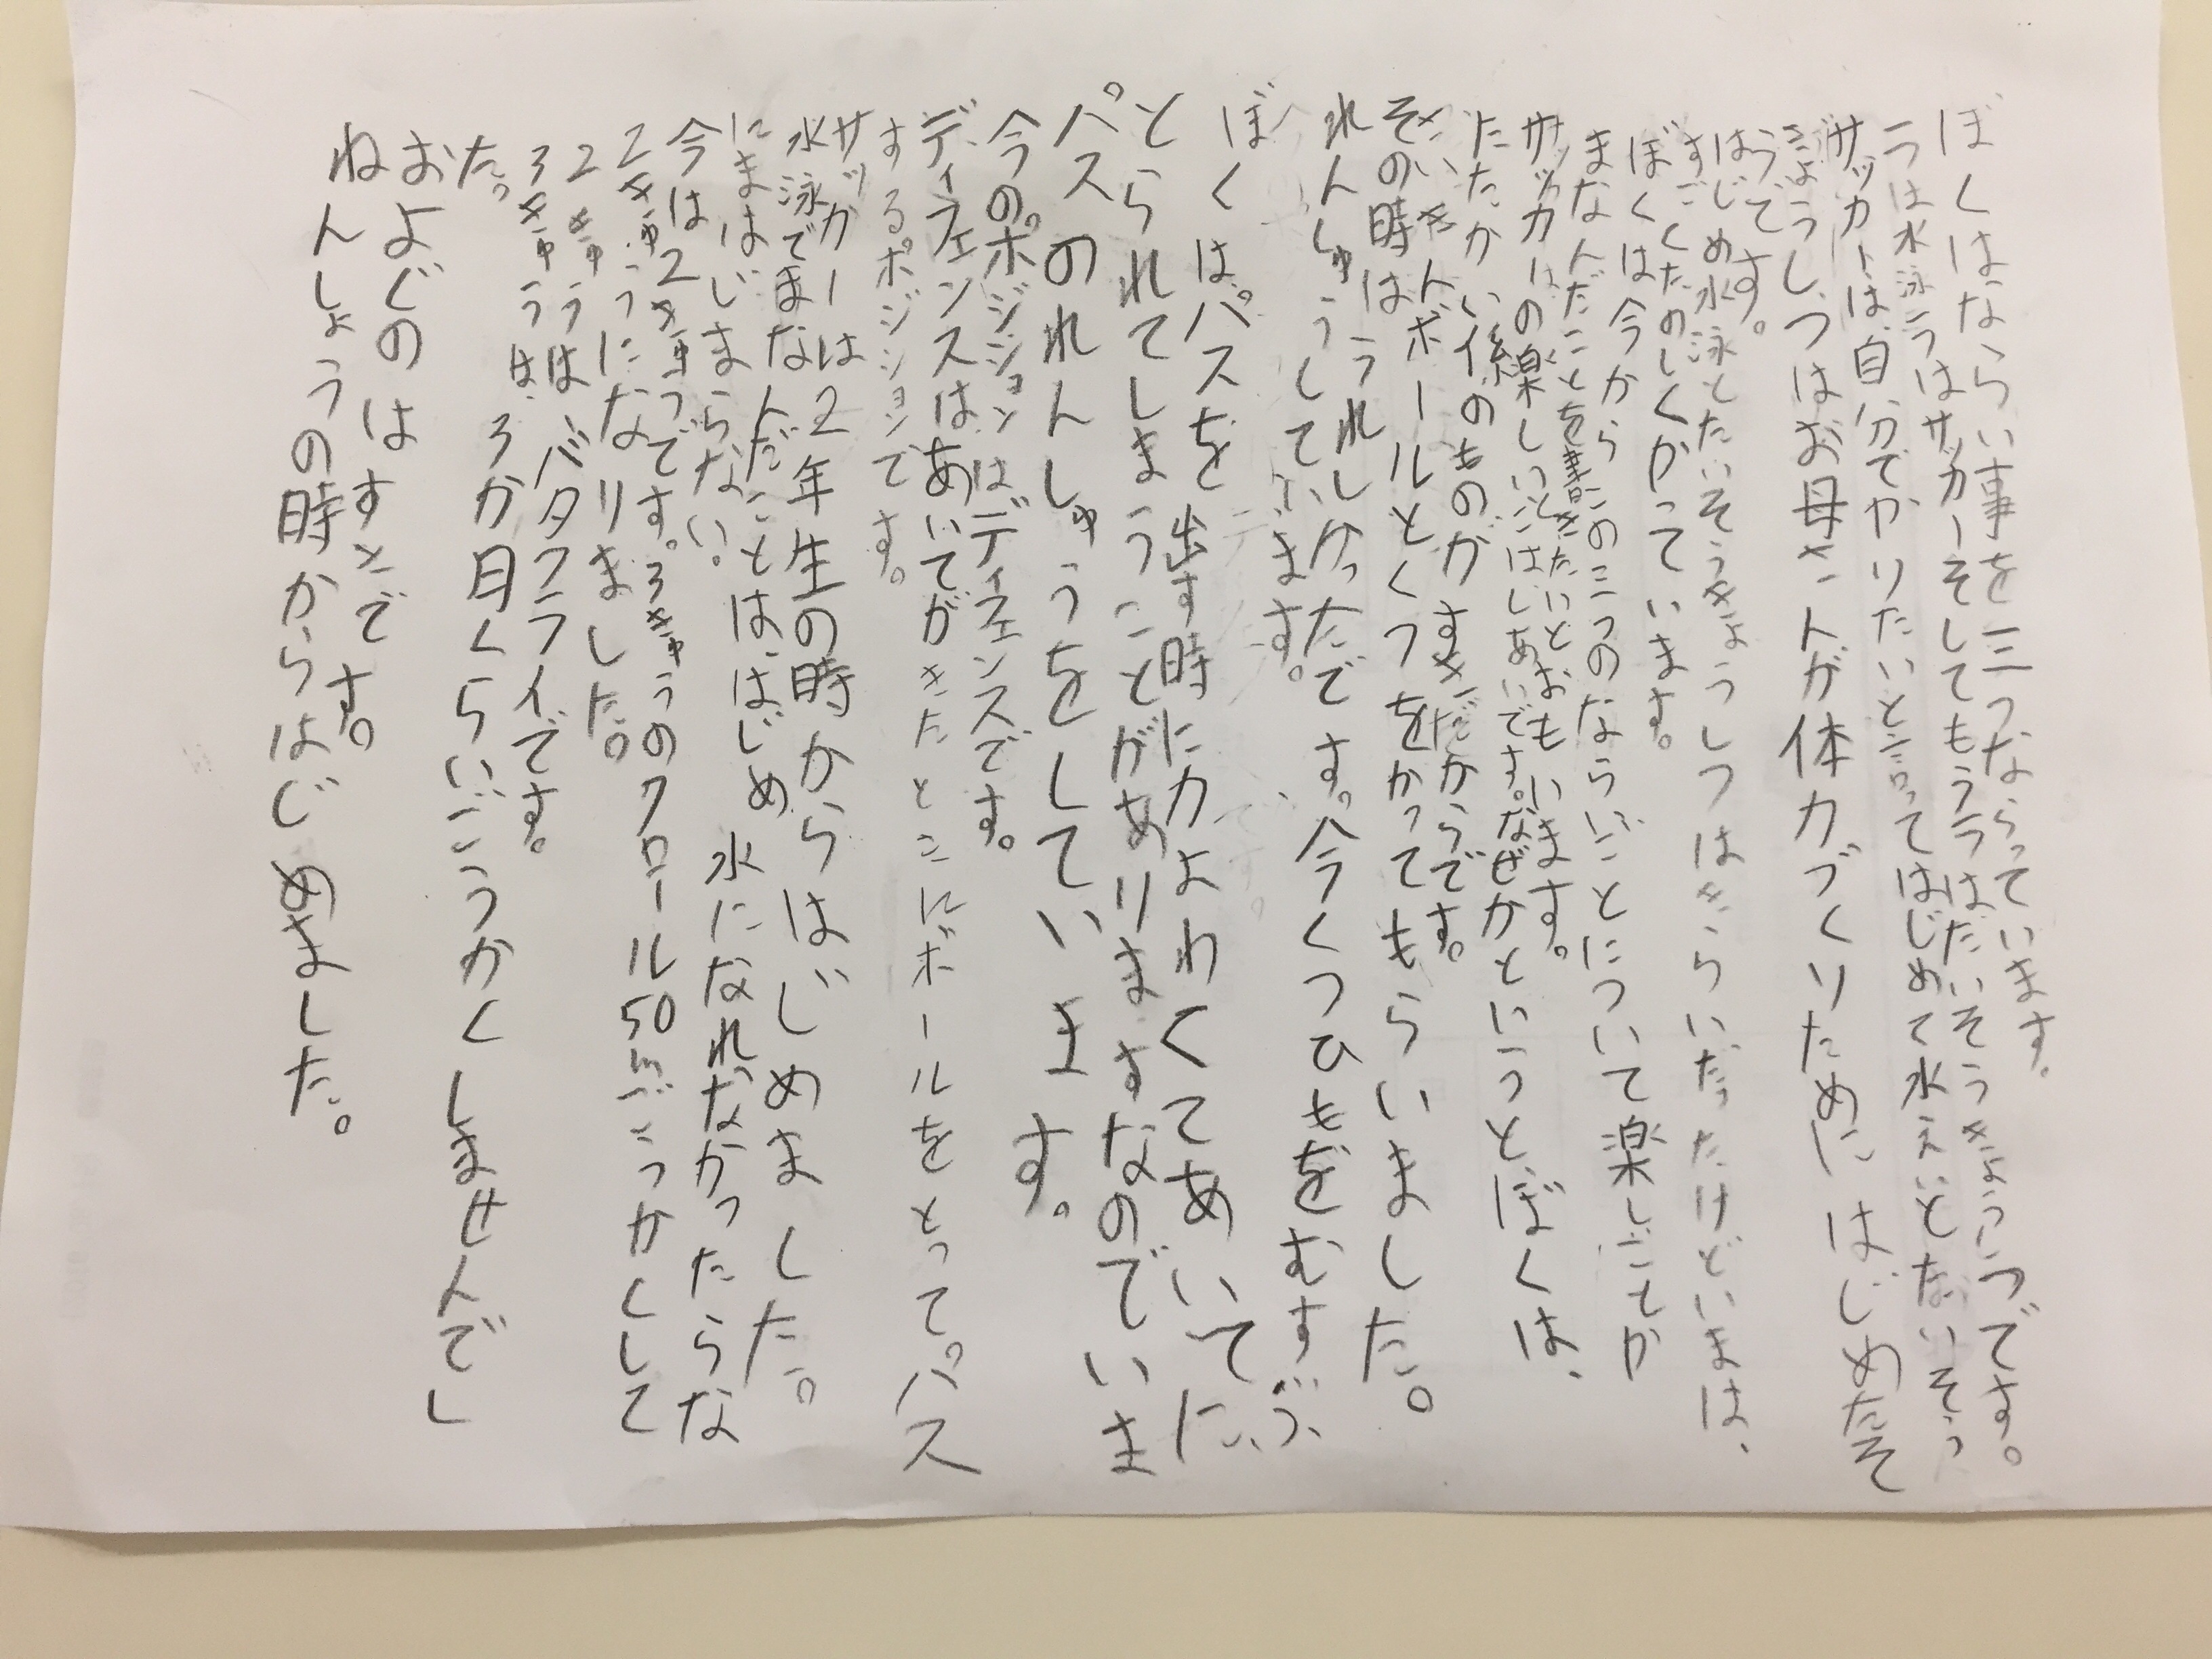 ぼくはならい事を三つならっています。
一つは水泳二つはサッカーそしてもう一つはたいそうきょうしつです。
サッカーは自分でやりたいと言ってはじめて水えいとたいそう
きょうしつはお母さんが体力づくりためにはじめたそ
うです。
はじめ水泳とたいそうきょうしつはきらいだったけどいまは、
すごくたのしくかっています。
ぼくは今からこの三つのならいごとについて楽しいことか
まなんだことを書きたいとおもいます。
サッカーの楽しいとこはしあいです。なぜかというとぼくは、
たたかい係のものがすきだからです。
さいきんボールとくつをかってもらいました。
その時はうれしかったです。今くつひもをむすぶ
れんしゅうしています。
ぼくはパスを出す時に力よわくてあいてに
とられてしまうことがありますなのでいま
パスのれんしゅうをしています。
今のポジションはディフェンスです。
ディフェンスはあいてがきたとこにボールをとってパス
するポジションです。
サッカーは2年生の時からはじめました。
水泳でまなんだことははじめ水になれなかったらな
にもはじまらない。
今は2きゅうです。3きゅうのクロール50mごうかくして
2きゅうになりました。
2きゅうはバタフライです。
3きゅうは3か月くらいごうかくしませんでし
た。
およぐのはすきです。
ねんしょうの時からはじめました。